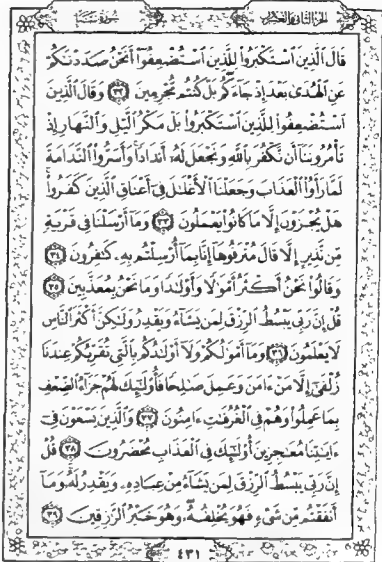 الجزء الثاني والعشرون
سورة سبإ
قَالَ ٱلَّذِينَ ٱسْتَكْبَرُوا۟ لِلَّذِينَ ٱسْتُضْعِفُوٓا۟ أَنَحْنُ صَدَدْنَٰكُمْ
عَنِ ٱلْهُدَىٰ بَعْدَ إِذْ جَآءَكُم بَلْ كُنتُم مُّجْرِمِينَ ٣٢ وَقَالَ ٱلَّذِينَ
ٱسْتُضْعِفُوا۟ لِلَّذِينَ ٱسْتَكْبَرُوا۟ بَلْ مَكْرُ ٱلَّيْلِ وَٱلنَّهَارِ إِذْ
تَأْمُرُونَنَآ أَن نَّكْفُرَ بِٱللَّهِ وَنَجْعَلَ لَهُۥٓ أَندَادًا وَأَسَرُّوا۟ ٱلنَّدَامَةَ
لَمَّا رَأَوُا۟ ٱلْعَذَابَ وَجَعَلْنَا ٱلْأَغْلَٰلَ فِىٓ أَعْنَاقِ ٱلَّذِينَ كَفَرُوا۟
هَلْ يُجْزَوْنَ إِلَّا مَا كَانُوا۟ يَعْمَلُونَ ٣٣ وَمَآ أَرْسَلْنَا فِى قَرْيَةٍ
مِّن نَّذِيرٍ إِلَّا قَالَ مُتْرَفُوهَآ إِنَّا بِمَآ أُرْسِلْتُم بِهِۦ كَٰفِرُونَ ٣٤
وَقَالُوا۟ نَحْنُ أَكْثَرُ أَمْوَٰلًا وَأَوْلَٰدًا وَمَا نَحْنُ بِمُعَذَّبِينَ ٣٥
قُلْ إِنَّ رَبِّى يَبْسُطُ ٱلرِّزْقَ لِمَن يَشَآءُ وَيَقْدِرُ وَلَٰكِنَّ أَكْثَرَ ٱلنَّاسِ
لَا يَعْلَمُونَ ٣٦ وَمَآ أَمْوَٰلُكُمْ وَلَآ أَوْلَٰدُكُم بِٱلَّتِى تُقَرِّبُكُمْ عِندَنَا
زُلْفَىٰٓ إِلَّا مَنْ ءَامَنَ وَعَمِلَ صَٰلِحًا فَأُو۟لَٰٓئِكَ لَهُمْ جَزَآءُ ٱلضِّعْفِ
بِمَا عَمِلُوا۟ وَهُمْ فِى ٱلْغُرُفَٰتِ ءَامِنُونَ ٣٧ وَٱلَّذِينَ يَسْعَوْنَ فِىٓ
ءَايَٰتِنَا مُعَٰجِزِينَ أُو۟لَٰٓئِكَ فِى ٱلْعَذَابِ مُحْضَرُونَ ٣٨ قُلْ
إِنَّ رَبِّى يَبْسُطُ ٱلرِّزْقَ لِمَن يَشَآءُ مِنْ عِبَادِهِۦ وَيَقْدِرُ لَهُۥ وَمَآ
أَنفَقْتُم مِّن شَىْءٍ فَهُوَ يُخْلِفُهُۥ وَهُوَ خَيْرُ ٱلرَّٰزِقِينَ ٣٩
٤٣١